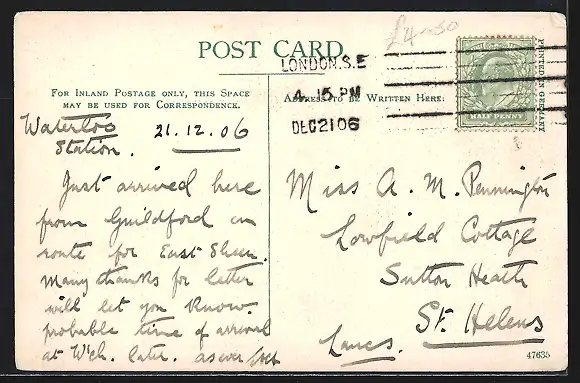 £4-50
POST CARD.
LONDON.S.E
4.15 PM
DEC 21 06
HALF PENNY
PRINTED IN GERMANY
FOR INLAND POSTAGE ONLY, THIS SPACE
MAY BE USED FOR CORRESPONDENCE.
ADDRESS TO BE WRITTEN HERE.
Waterloo 21.12.06
Station.
Just arrived here
from Guildford en
route for East Sheen.
Many thanks for letter
will let you know
probable time of arrival
at W'ch. later. as ever
Miss A. M. Pennington
Lowfield Cottage
Sutton Heath
St. Helens
Lancs.
47635